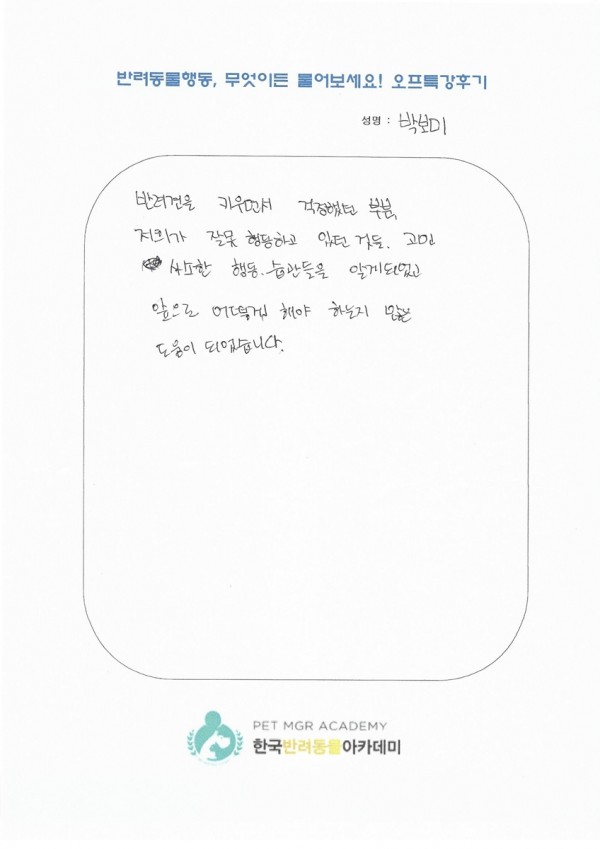 반려동물행동, 무엇이든 물어보세요! 오프특강후기
성명 : 박보미
반려견을 키우면서 걱정했던 부분,
저희가 잘못 행동하고 있던 것들. 고민
사소한 행동. 습관들을 알게되었고
앞으로 어떻게 해야 하는지 많은
도움이 되었습니다.
PET MGR ACADEMY
한국반려동물아카데미